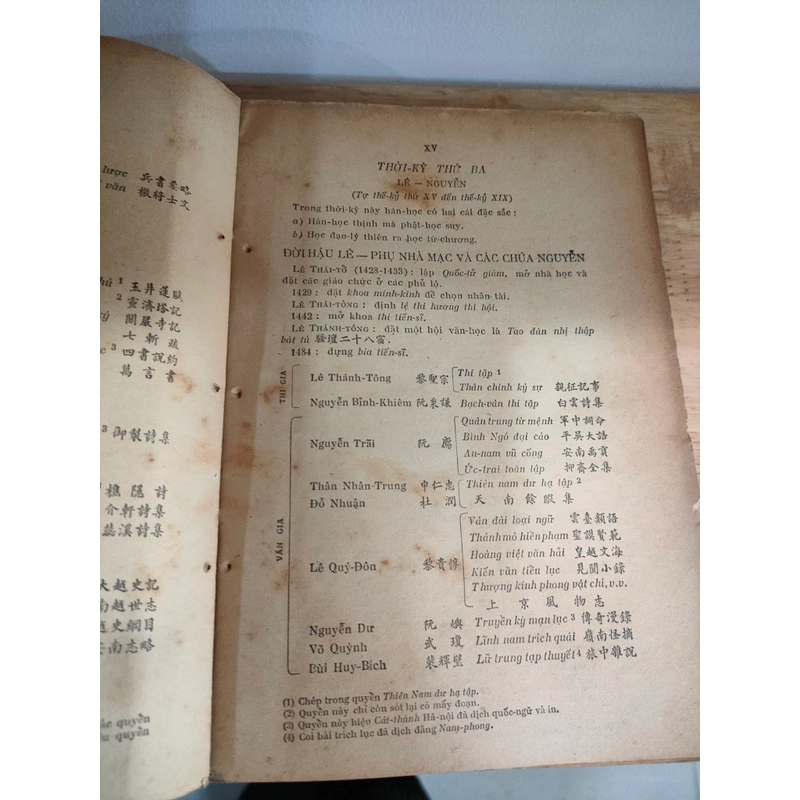 lược 兵書要略
văn 檄將士文
phủ ¹ 玉井蓮賦
² 靈濟塔記
ký 開嚴寺記
七斬疏
c ³ 四書說約
萬言書
³ 御製詩集
樵隱詩
介軒詩集
蕊溪詩集
大越史記
南越世志
越史綱目
安南志略
các quyển
ều quyển
XV
THỜI-KỲ THỨ BA
LÊ — NGUYỄN
(Tự thế-kỷ thứ XV đến thế-kỷ XIX)
Trong thời-kỳ này hán-học có hai cái đặc sắc :
a) Hán-học thịnh mà phật-học suy.
b) Học đạo-lý thiên ra học từ-chương.
ĐỜI HẬU LÊ — PHỤ NHÀ MẠC VÀ CÁC CHÚA NGUYỄN
LÊ THÁI-TỔ (1428-1433) : lập Quốc-tử giám, mở nhà học và
đặt các giáo chức ở các phủ lộ.
1429 : đặt khoa minh-kinh để chọn nhân tài.
LÊ THÁI-TÔNG : định lệ thi hương thi hội.
1442 : mở khoa thi tiến-sĩ.
LÊ THÁNH-TÔNG : đặt một hội văn-học là Tao đàn nhị thập
bát tú 騷壇二十八宿.
1484 : dựng bia tiến-sĩ.
THI GIA
Lê Thánh-Tông 黎聖宗 Thi tập ¹
Thân chinh ký sự 親征記事
Nguyễn Bỉnh-Khiêm 阮秉謙 Bạch-vân thi tập 白雲詩集
VĂN GIA
Nguyễn Trãi 阮廌 Quân trung từ mệnh 軍中詞命
Bình Ngô đại cáo 平吳大誥
An-nam vũ cống 安南禹貢
Ức-trai toàn tập 抑齋全集
Thân Nhân-Trung 申仁忠 Thiên nam dư hạ tập ²
Đỗ Nhuận 杜潤 天南餘暇集
Lê Quý-Đôn 黎貴惇 Vân đài loại ngữ 雲臺類語
Thánh mô hiền phạm 聖謨賢範
Hoàng việt văn hải 皇越文海
Kiến văn tiểu lục 見聞小錄
Thượng kinh phong vật chí, v.v.
上京風物志
Nguyễn Dư 阮嶼 Truyền kỳ mạn lục ³ 傳奇漫錄
Võ Quỳnh 武瓊 Lĩnh nam trích quái 嶺南怪摘
Bùi Huy-Bích 裴輝璧 Lữ trung tạp thuyết ⁴ 旅中雜說
(1) Chép trong quyển Thiên Nam dư hạ tập.
(2) Quyển này chỉ còn sót lại có mấy đoạn.
(3) Quyển này hiệu Cát-thành Hà-nội đã dịch quốc-ngữ và in.
(4) Coi bài trích lục đã dịch đăng Nam-phong.